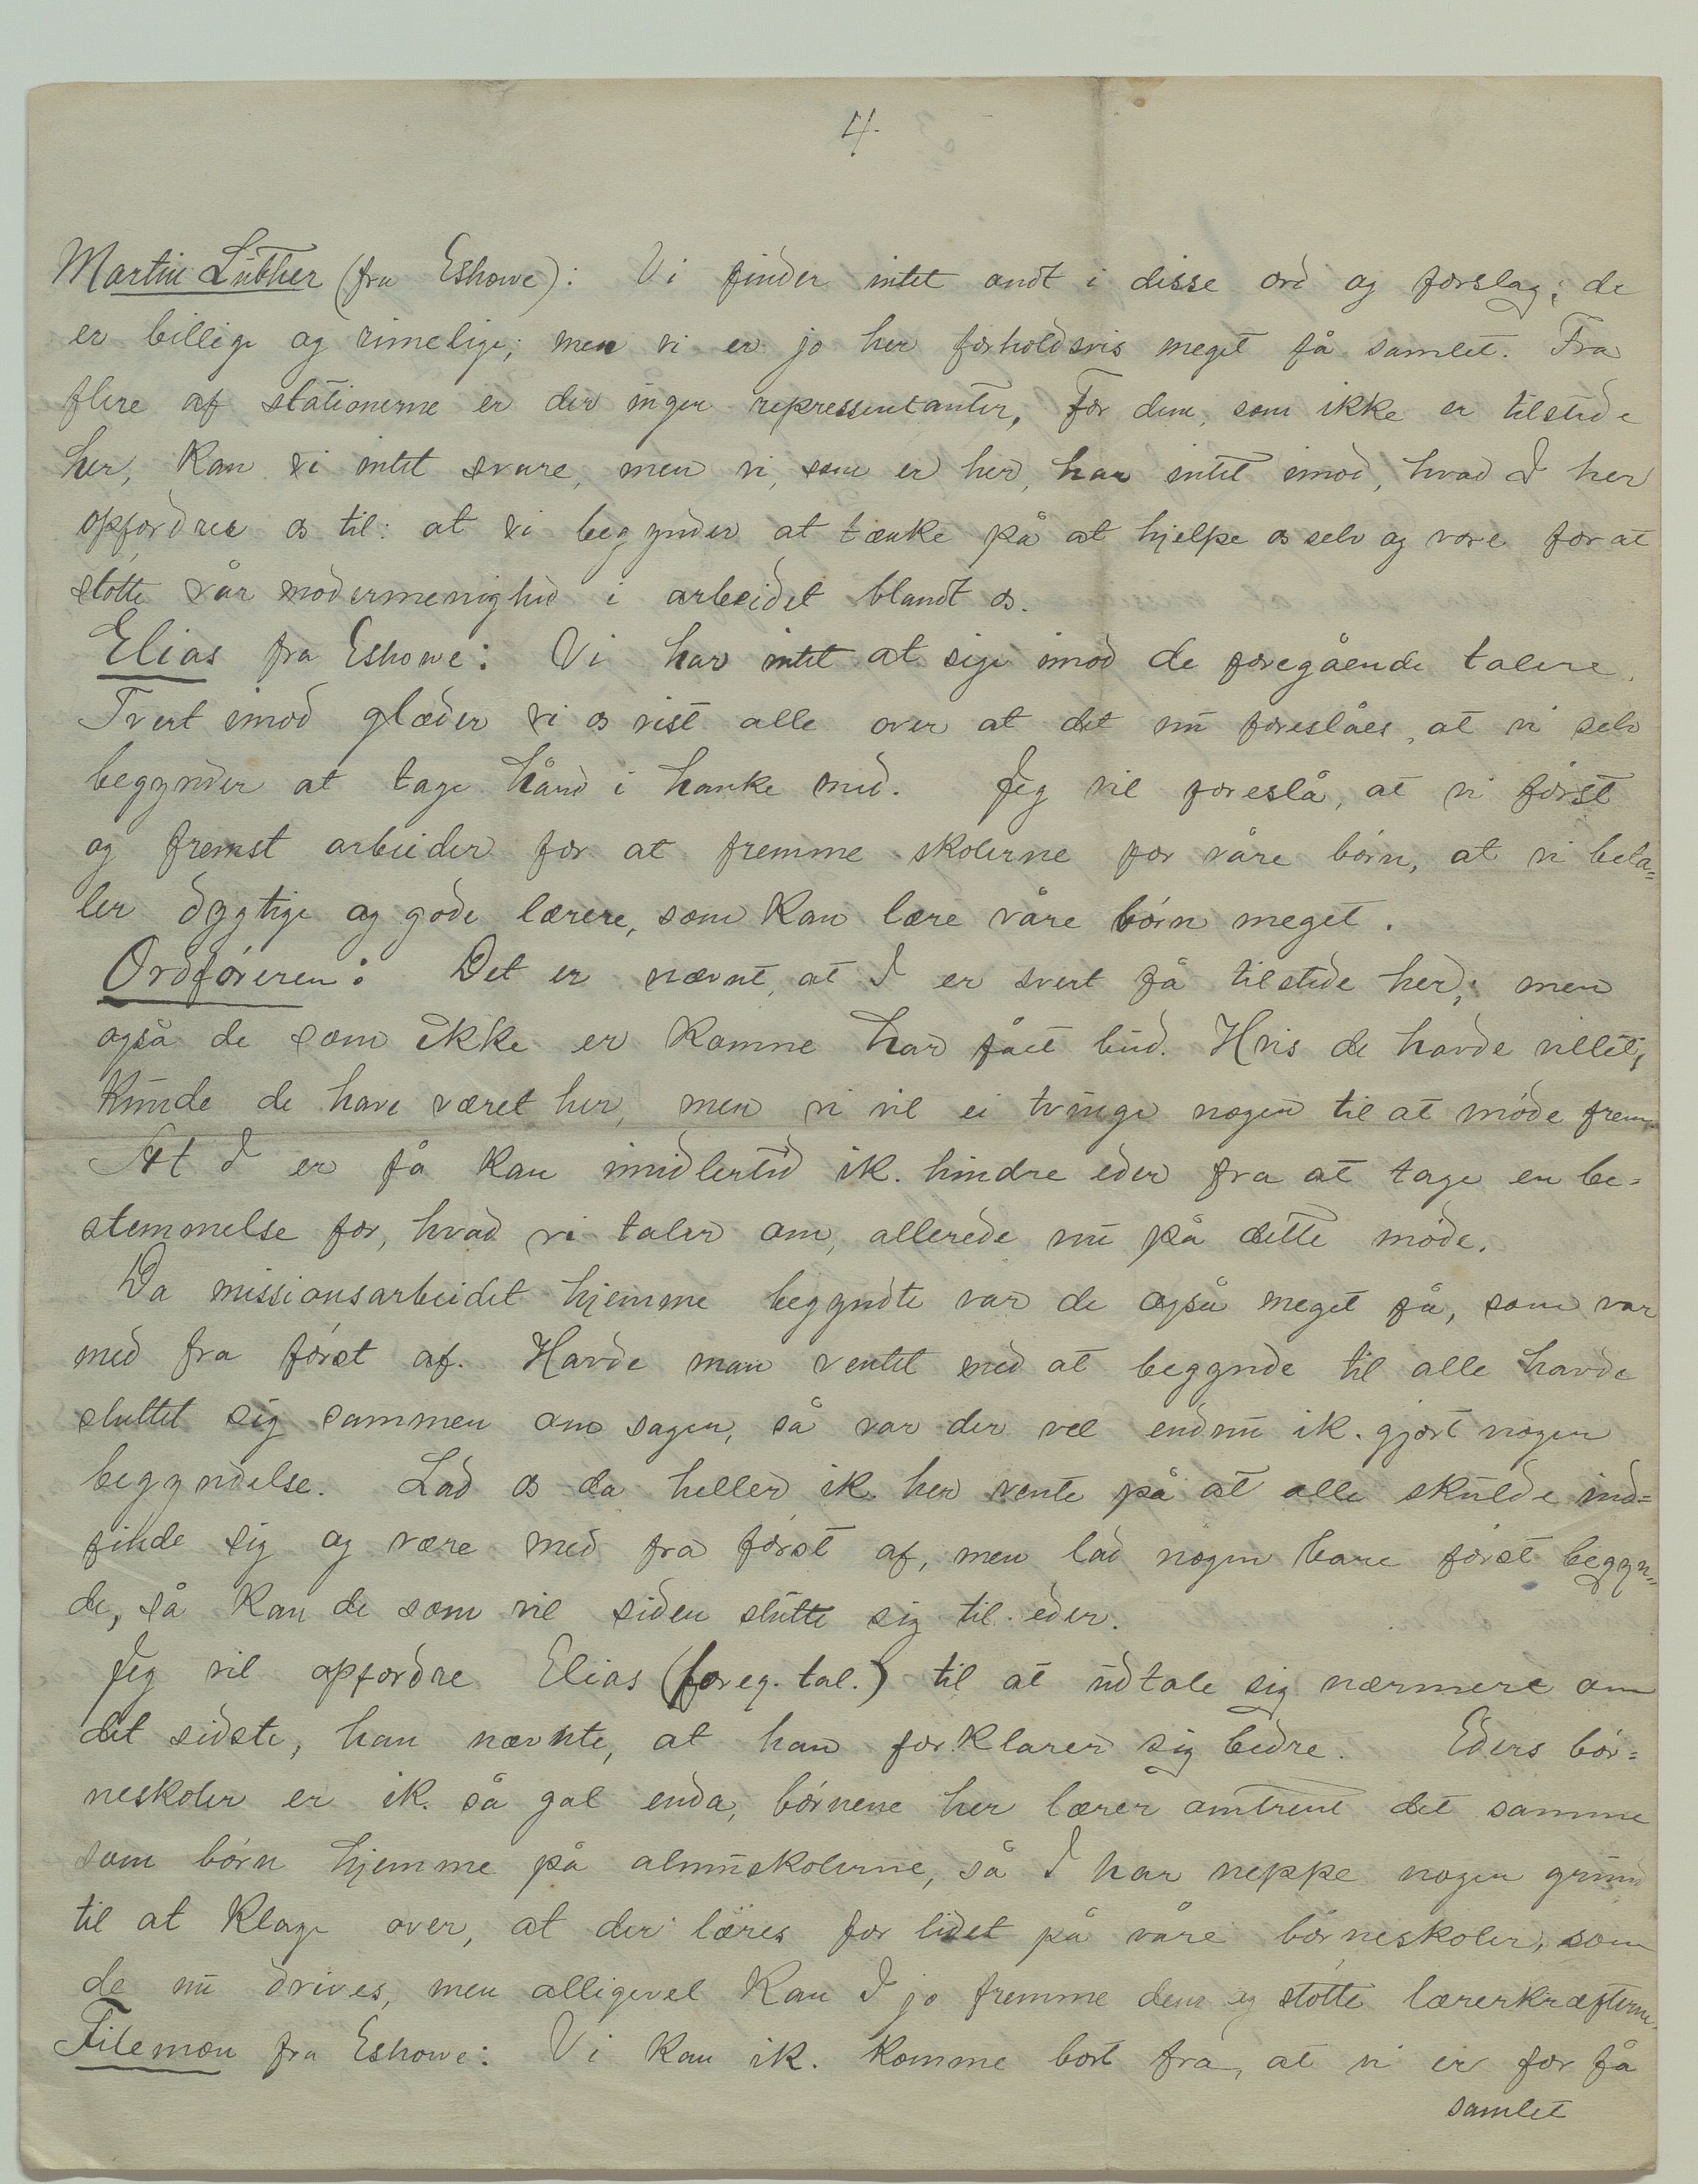 4.
Martin Luther (fra Eshowe): Vi finder intet ondt i disse ord og forslag; de
er billige og rimelige; men vi er jo her forholdsvis meget få samlet. Fra
flere af stationerne er der ingen repressentanter, For dem, som ikke er tilstede
her, kan vi intet svare, men vi, som er her, har intet imod, hvad I her
opfordrer os til: at vi begynder at tænke på at hjelpe os selv og være for at
støtte vår modermenighed i arbeidet blandt os.
Elias fra Eshowe: Vi har intet at sige imod de foregående talere.
Tvert imod glæder vi os vist alle over at det nu foreslåes, at vi selv
begynder at tage hånd i hanke med. Jeg vil foreslå, at vi først
og fremst arbeider for at fremme skolerne for våre børn, at vi beta=
ler dygtige og gode lærere, som kan lære våre børn meget.
Ordføreren: Det er nævnt, at I er svert få tilstede her; men
også de som ikke er komne har fået bud. Hvis de havde villet,
kunde de have været her, men vi vil ei tvinge nogen til at møde frem.
At I er få kan imidlertid ik. hindre eder fra at tage en be=
stemmelse for, hvad vi taler om, allerede nu på dette møde.
Da missionsarbeidet hjemme begyndte var de også meget få, som var
med fra først af. Havde man ventet med at begynde til alle havde
sluttet sig sammen om sagen, så var der vel endnu ik. gjort nogen
begyndelse. Lad os da heller ik. her vente på at alle skulde ind=
finde sig og være med fra først af, men lad nogen bare først begyn=
de, så kan de som vil siden slutte sig til eder.
Jeg vil opfordre Elias (foreg. tal.) til at udtale sig nærmere om
det sidste, han nævnte, at han forklarer sig bedre. Eders bør=
neskoler er ik. så gal enda, børnene her lærer omtrent det samme
som børn hjemme på almuskolerne, så I har neppe nogen grund
til at klage over, at der læres for lidet på våre børneskoler, som
de nu drives, men alligevel kan I jo fremme dem og støtte lærerkræfterne.
Filemon fra Eshowe: Vi kan ik. komme bort fra, at vi er for få
samlet